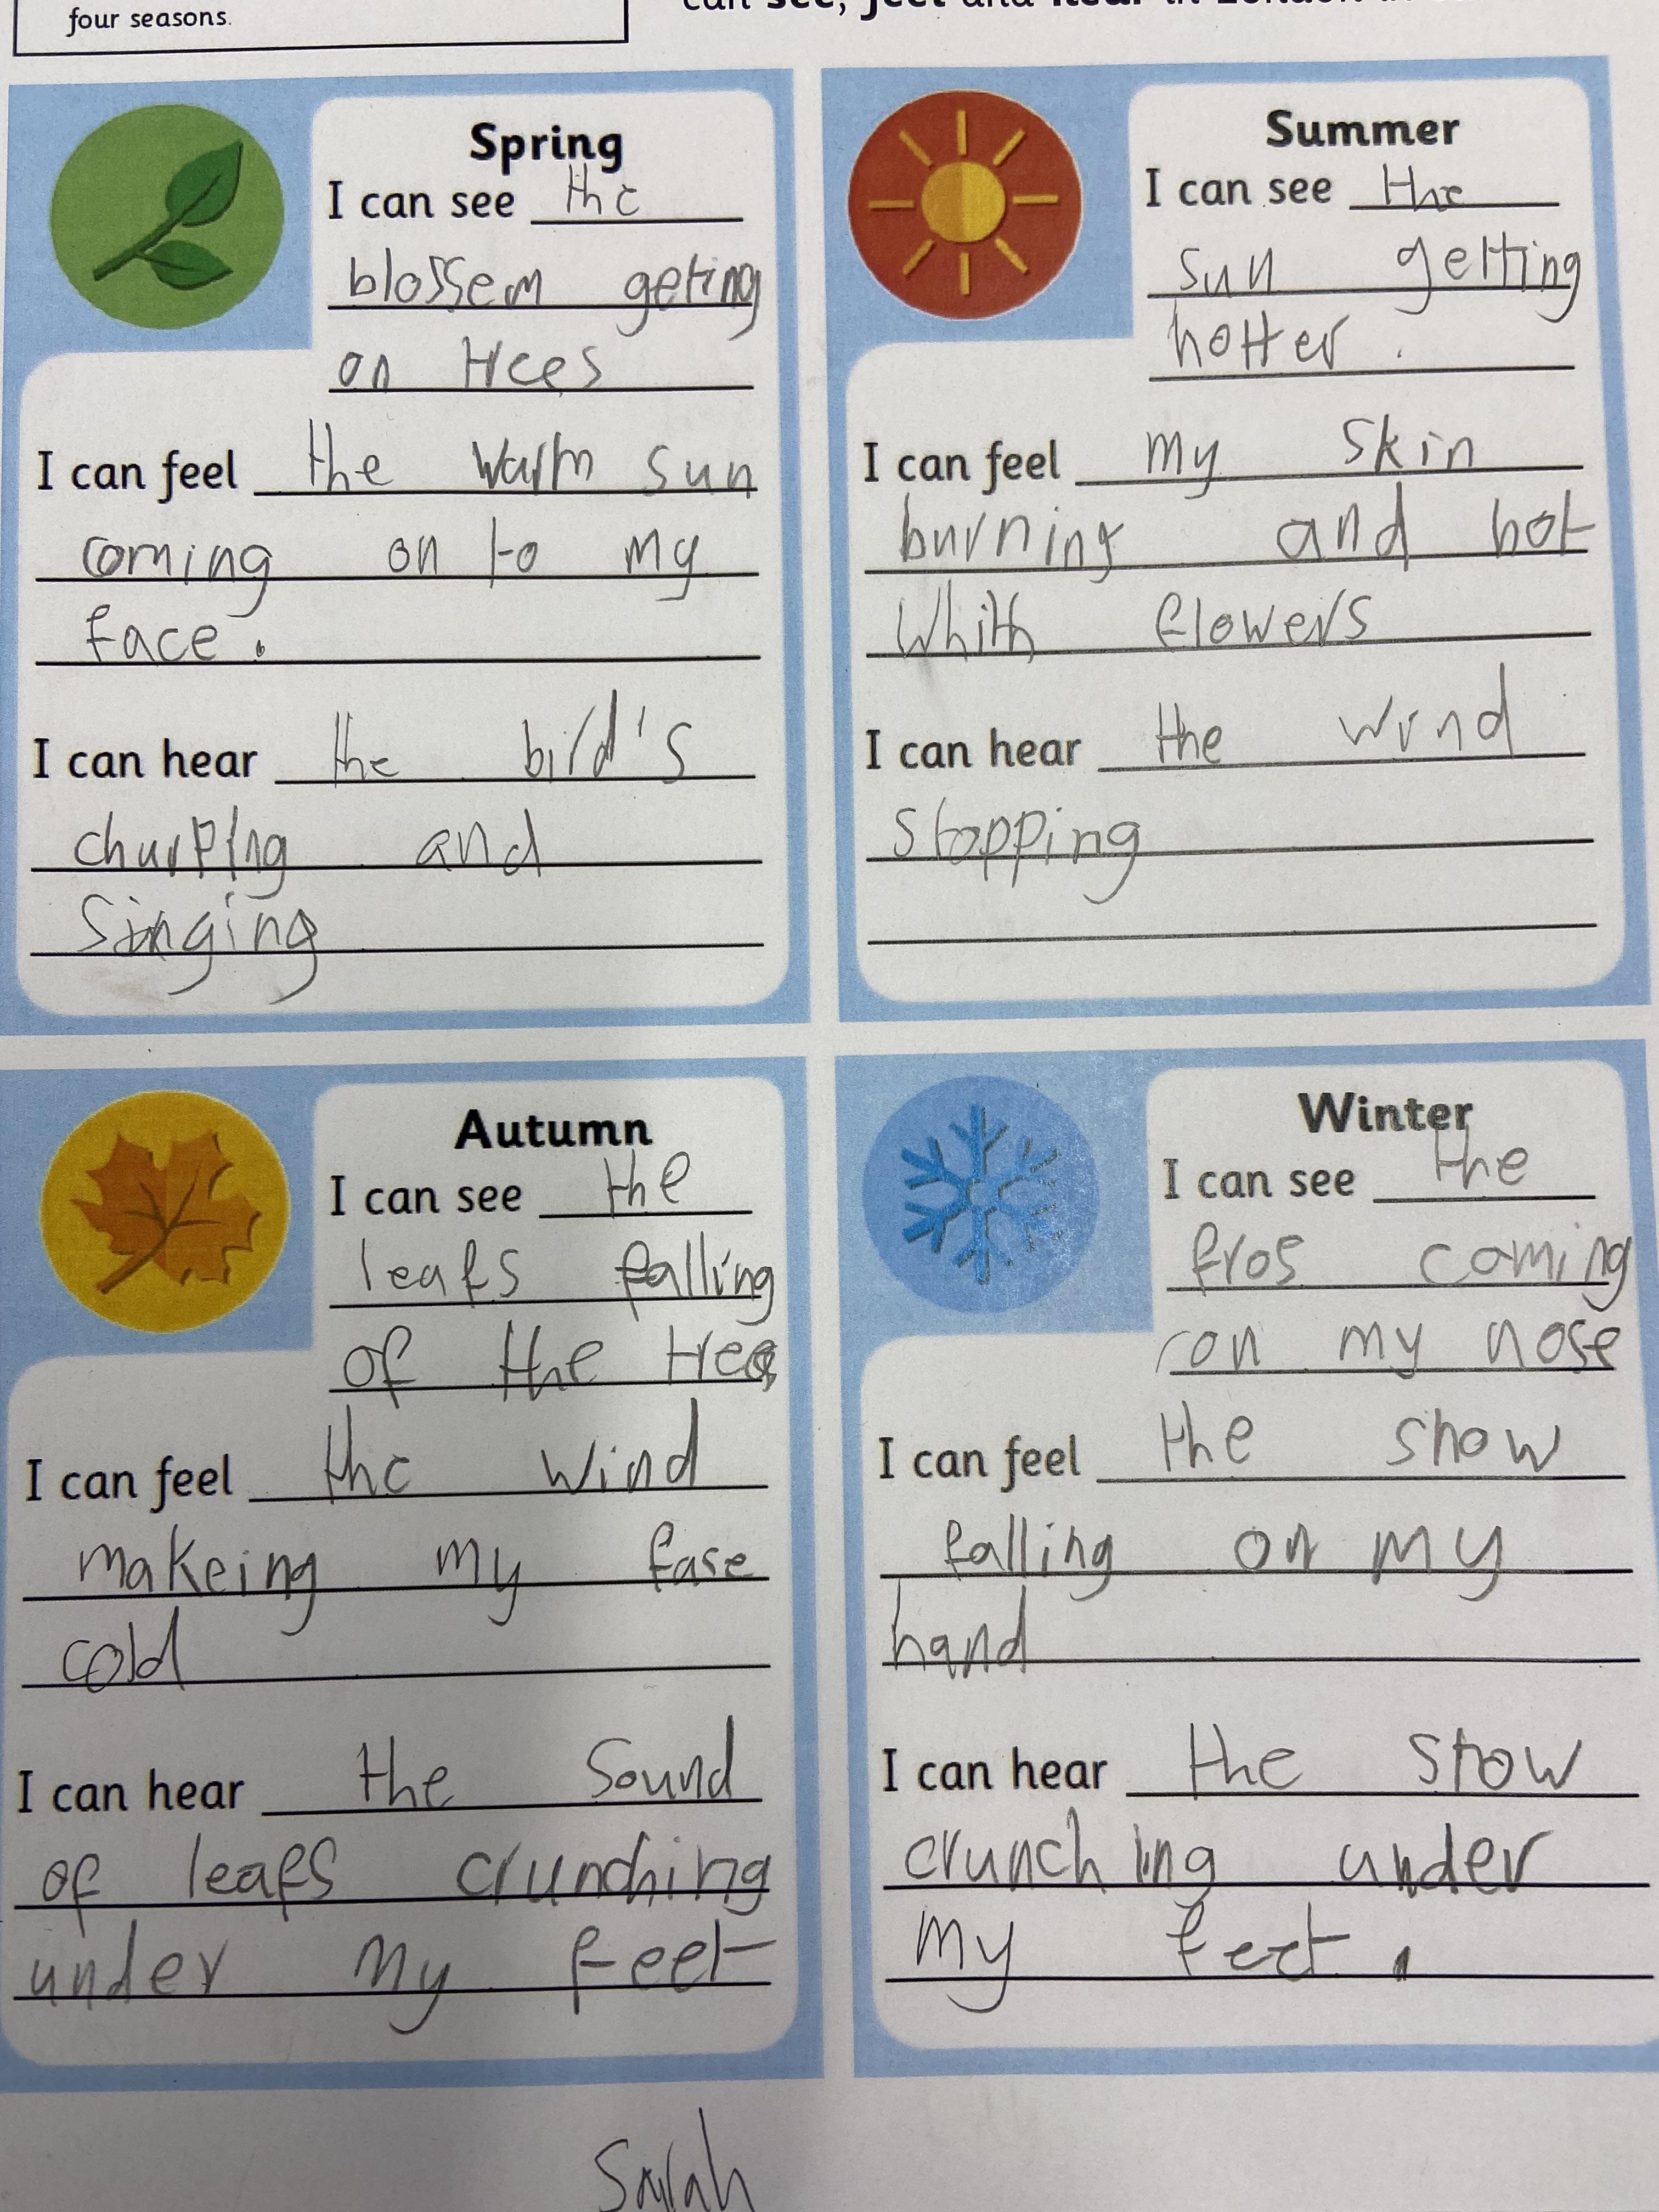 four seasons.
can see, feel and hear in London in
Spring
I can see the
blossem geting
on trees
I can feel the warm sun
coming on to my
face.
I can hear the bird's
churping and
singing
Summer
I can see the
sun getting
hotter.
I can feel my skin
burning and hot
whith flowers
I can hear the wind
stopping
Autumn
I can see the
leafs falling
of the trees
I can feel the wind
makeing my fase
cold
I can hear the sound
of leafs crunching
under my feet
Winter
I can see the
fros coming
on my nose
I can feel the snow
falling on my
hand
I can hear the snow
crunching under
my feet.
Sarah